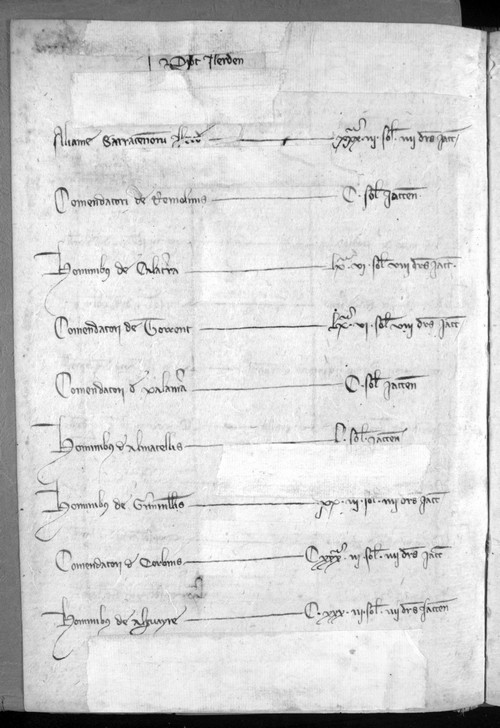 Dipt Ilerden
Aliame Sarracenorum xxxiii sol. iiii drs Jacc
Comendatori de Remolinis C. sol Jaccen
Hominibus de Calatra lx vi sol viii drs Jacc.
Comendatori de Torrent lx vi sol. viii drs Jacc
Comendatori d C. sol Jaccen
Hominibus d Almacellis L. sol. Jaccen
Hominibus de sol iiii drs Jacc
Comendatori d Corbins Cxxx iii sol. iiii drs Jacc
Hominibus de Alguayre C. xxx. iii sol. iiii drs Jaccen